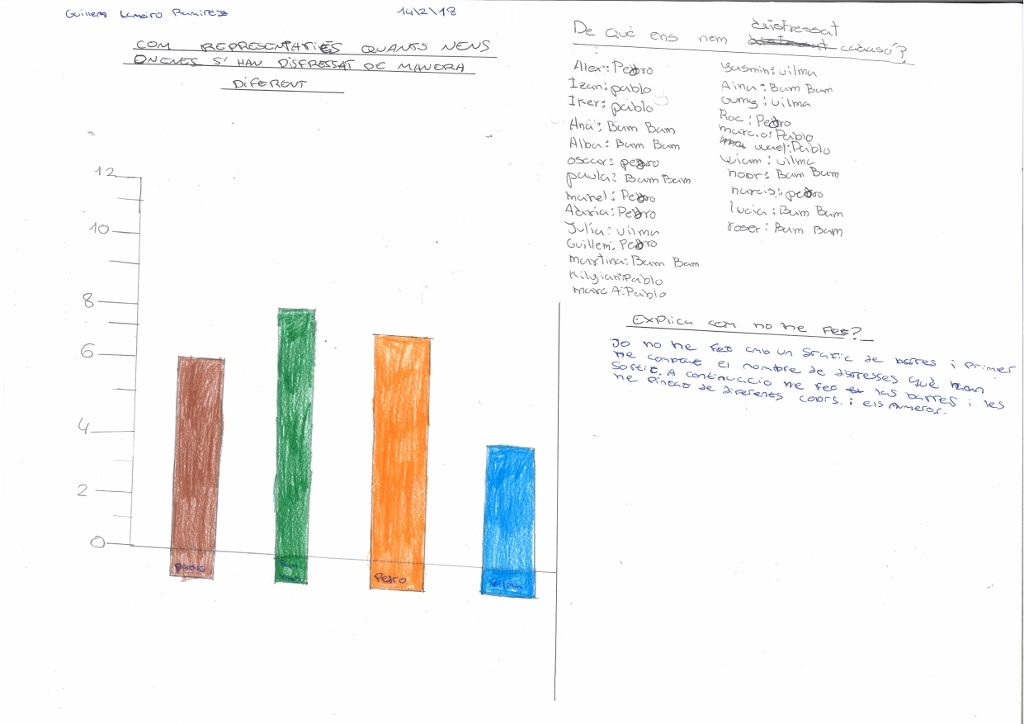 Guillem Lameiro Ramirez
14\2\18
COM REPRESENTARIES QUANTS NENS
O NENES S'HAN DISFRESSAT DE MANERA
DIFERENT
12
10
8
6
4
2
0
Pedro
De què ens hem disfressat
cadascú?
Alex: Pedro
Izan: pablo
Iker: pablo
Ana: Bam Bam
Alba: Bam Bam
oscar: pedro
paula: Bam Bam
manel: Pedro
Adaria: Pedro
Julia: vilma
Guillem: Pedro
martina: Bam Bam
Kilyian: Pablo
marc A: Pablo
Yasmin: vilma
Aina: Bam Bam
oumy: vilma
Roc: Pedro
marcio: Pablo
wael: Pablo
wiam: vilma
noor: Bam Bam
narcis: pedro
lucia: Bam Bam
roser: Bam Bam
Explica com ho he fet?
Jo ho he fet amb un grafic de barres i primer
he comptat el nombre de disfresses què han
sortit. A continuacio he fet las barres i les
he pintat de diferents colors i els numeros.